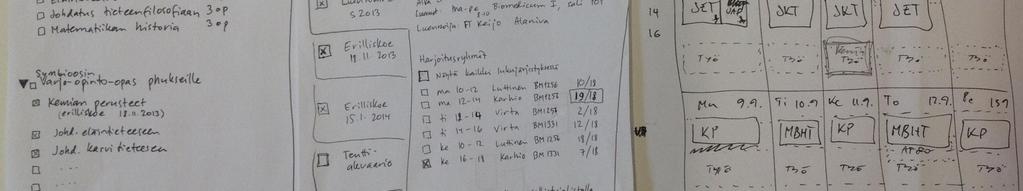 Johdatus tieteenfilosofiaan 3 op
Matematiikan historia 3 op
Symbioosin
Varjo-opinto-opas phukseille
Kemian perusteet
(erilliskoe 18.11.2013)
Johd. eläintieteeseen
Johd. kasvitieteeseen
5.2013
Erilliskoe
18.11.2013
Erilliskoe
15.1.2014
Tentti-
akvaario
Biomedicum 1, sali 101
Luennoija: FT Keijo Alaniva
Harjoitusryhmät
Näytä kaikki
ma 10-12 Luttinen BM1256 10/18
ma 12-14 Karhio BM1256 19/18
ti 12-14 Virta BM1257 2/18
ti 14-16 Virta BM1331 12/18
ke 10-12 Luttinen BM1256 18/18
ke 16-18 Karhio BM1331 7/18
14
16
JET JKT JKT JET
Työ Työ Työ Työ Työ
Ma 9.9. Ti 10.9 Ke 11.9. To 12.9. Pe 13.9
KP MBHT KP MBHT KP
Työ Työ Työ Työ Työ